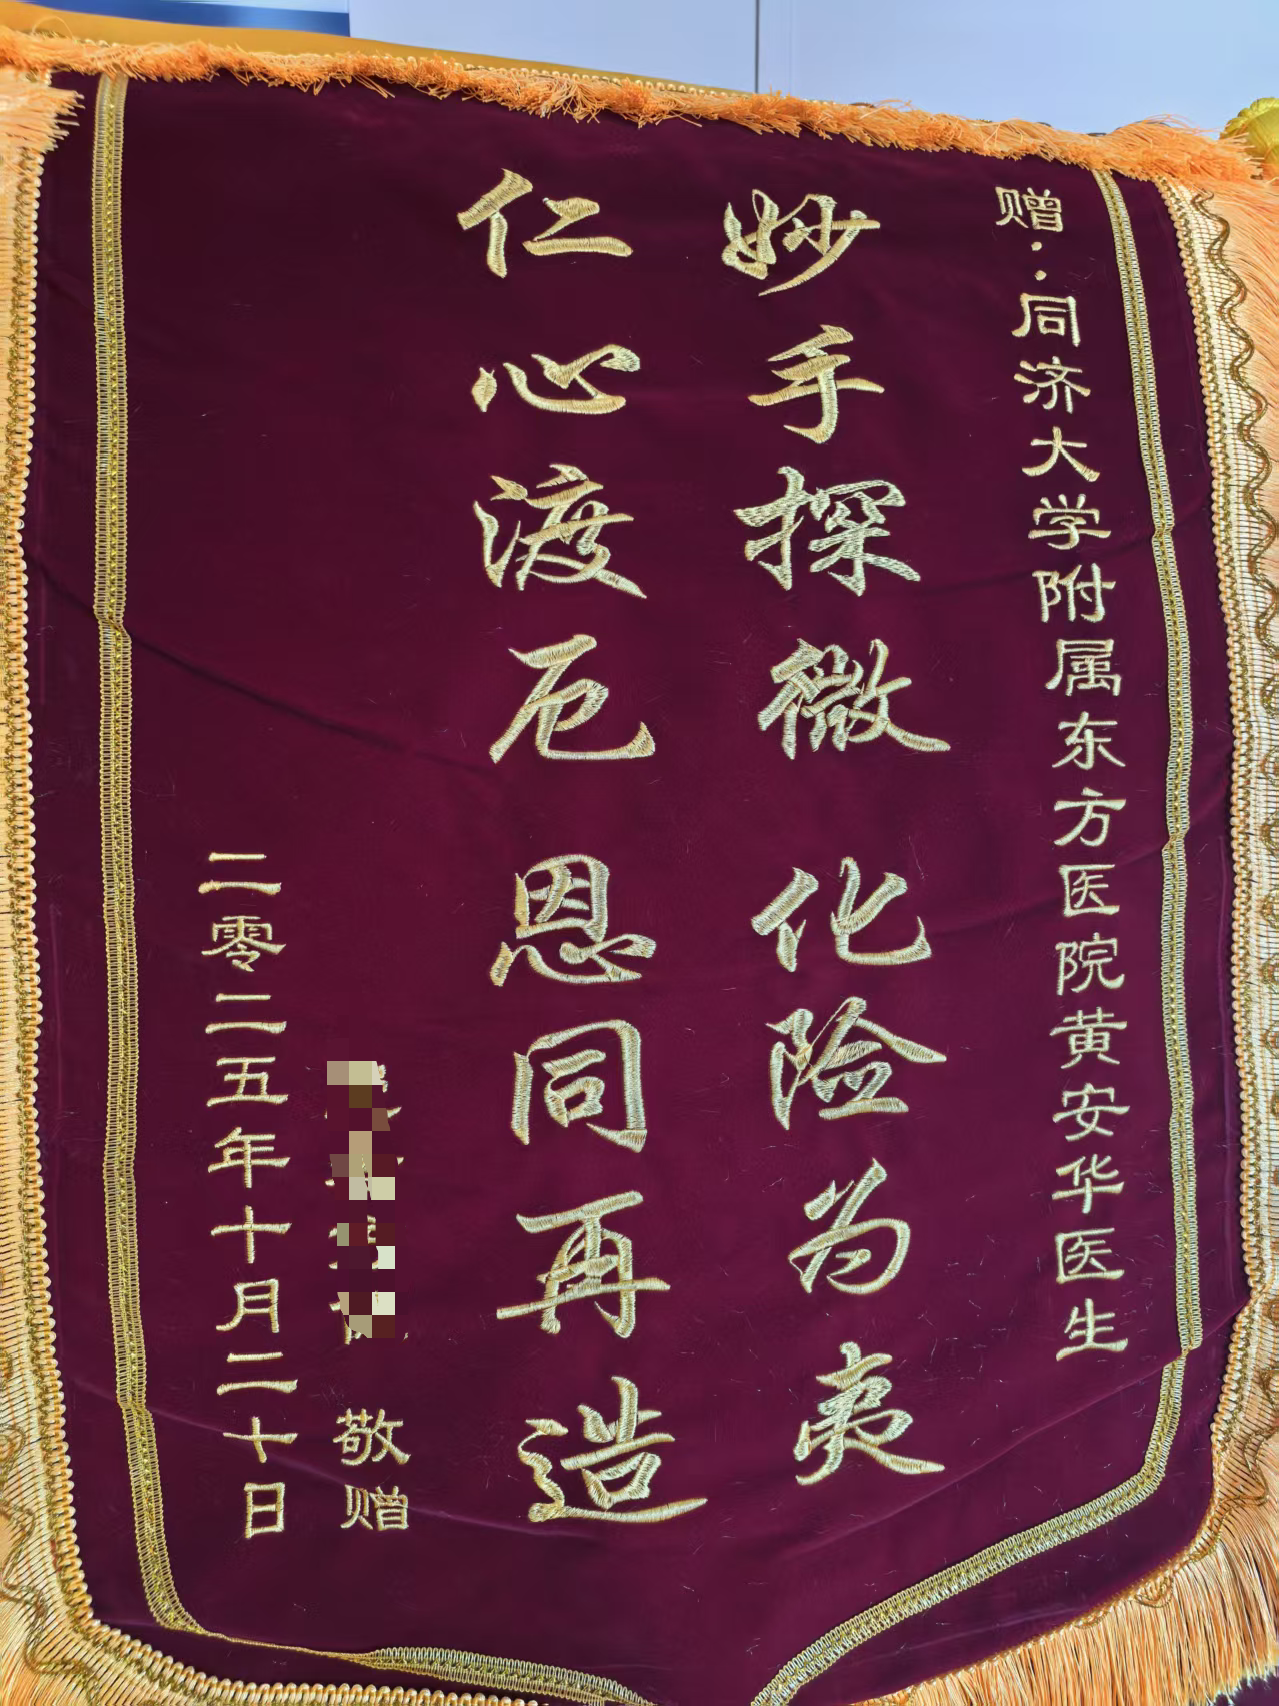 赠：同济大学附属东方医院黄安华医生
妙手探微 化险为夷
仁心渡厄 恩同再造
敬赠
二零二五年十月二十日